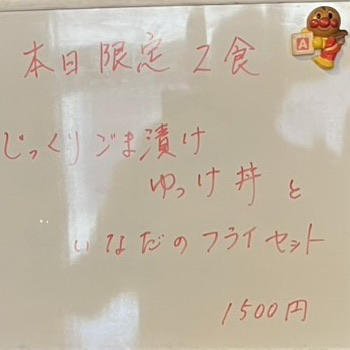 本日限定 2食
じっくりごま漬け
ゆっけ丼と
いなだのフライセット
1500円
A